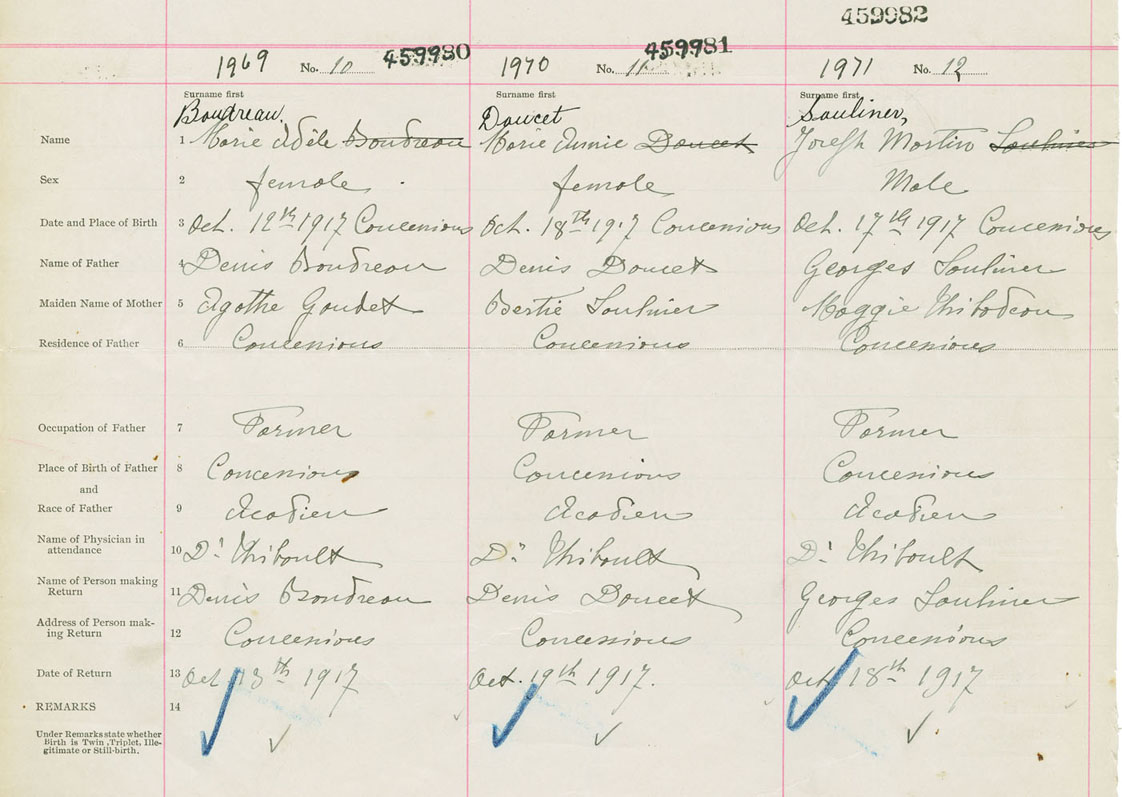 459982
1969 No. 10 459980 1970 No. 11 459981 1971 No. 12
Surname first Surname first Surname first
Boudreau, Doucet Saulnier,
Name 1 Marie Adèle Boudreau Marie Annie Doucet Joseph Martin Saulnier
Sex 2 female female Male
Date and Place of Birth 3 Oct. 12th 1917 Concessions Oct. 18th 1917 Concessions Oct. 17th 1917 Concessions
Name of Father 4 Denis Boudreau Denis Doucet Georges Saulnier
Maiden Name of Mother 5 Agathe Gaudet Bertie Saulnier Maggie Thibodeau
Residence of Father 6 Concessions Concessions Concessions
Occupation of Father 7 Farmer Farmer Farmer
Place of Birth of Father 8 Concessions Concessions Concessions
and
Race of Father 9 Acadien Acadien Acadien
Name of Physician in
attendance 10 Dr Thibault Dr Thibault Dr Thibault
Name of Person making
Return 11 Denis Boudreau Denis Doucet Georges Saulnier
Address of Person mak-
ing Return 12 Concessions Concessions Concessions
Date of Return 13 Oct 13th 1917 Oct. 19th 1917. Oct 18th 1917
REMARKS 14
Under Remarks state whether
Birth is Twin, Triplet, Ille-
gitimate or Still-birth.